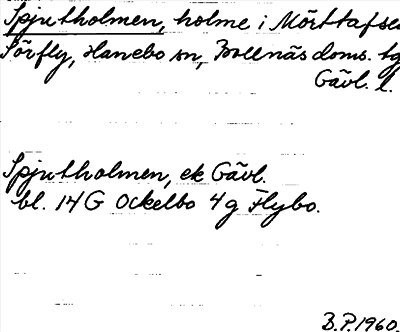 Spjutholmen, holme i Mörttafse
Sörfly, Hanebo sn, Bollnäs doms. tg
Gävl. l.
Spjutholmen, ek Gävl.
bl. 14 G Ockelbo 4 g Flybo.
B.P. 1960.